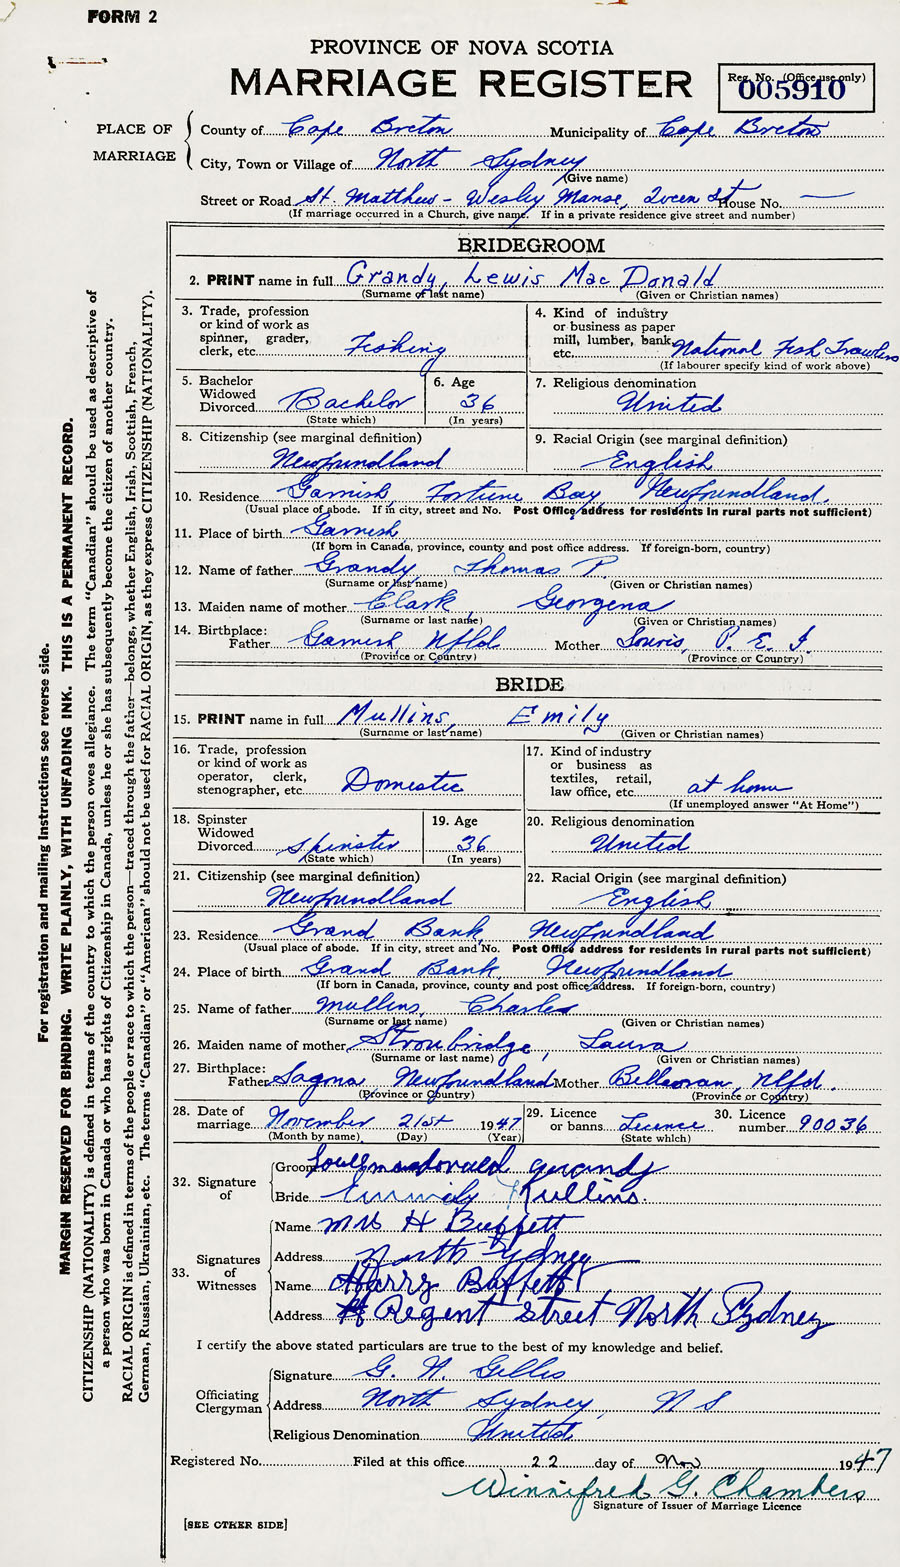 FORM 2
PROVINCE OF NOVA SCOTIA
MARRIAGE REGISTER
Reg. No. (Office use only)
005910
PLACE OF MARRIAGE
County of Cape Breton Municipality of Cape Breton
City, Town or Village of North Sydney
(Give name)
Street or Road St. Matthew - Wesley Manse, Queen St House No. —
(If marriage occurred in a Church, give name. If in a private residence give street and number)
BRIDEGROOM
2. PRINT name in full Grandy, Lewis MacDonald
(Surname of last name) (Given or Christian names)
3. Trade, profession or kind of work as spinner, grader, clerk, etc. Fishing
4. Kind of industry or business as paper mill, lumber, bank, etc. National Fish Trawlers
(If labourer specify kind of work above)
5. Bachelor Widowed Divorced Bachelor
(State which)
6. Age 36
(In years)
7. Religious denomination United
8. Citizenship (see marginal definition)
Newfundland
9. Racial Origin (see marginal definition)
English
10. Residence Garnish, Fortune Bay, Newfundland.
(Usual place of abode. If in city, street and No. Post Office address for residents in rural parts not sufficient)
11. Place of birth Garnish
(If born in Canada, province, county and post office address. If foreign-born, country)
12. Name of father Grandy, Thomas P.
(Surname or last name) (Given or Christian names)
13. Maiden name of mother Clark, Georgena
(Surname or last name) (Given or Christian names)
14. Birthplace: Father Garnish, Nfld Mother Souris, P. E. I.
(Province or Country) (Province or Country)
BRIDE
15. PRINT name in full Mullins, Emily
(Surname or last name) (Given or Christian names)
16. Trade, profession or kind of work as operator, clerk, stenographer, etc. Domestic
17. Kind of industry or business as textiles, retail, law office, etc. at home
(If unemployed answer "At Home")
18. Spinster Widowed Divorced Spinster
(State which)
19. Age 36
(In years)
20. Religious denomination United
21. Citizenship (see marginal definition)
Newfundland
22. Racial Origin (see marginal definition)
English
23. Residence Grand Bank, Newfundland
(Usual place of abode. If in city, street and No. Post Office address for residents in rural parts not sufficient)
24. Place of birth Grand Bank, Newfoundland
(If born in Canada, province, county and post office address. If foreign-born, country)
25. Name of father Mullins, Charles
(Surname or last name) (Given or Christian names)
26. Maiden name of mother Stroubridge, Laura
(Surname or last name) (Given or Christian names)
27. Birthplace: Father Sagona, Newfoundland Mother Belleoram, Nlfd.
(Province or Country) (Province or Country)
28. Date of marriage November 21st 1947
(Month by name) (Day) (Year)
29. Licence or banns Licence
(State which)
30. Licence number 90036
32. Signature of
Groom macdonald grandy
Bride Emmily Mullins.
33. Signatures of Witnesses
Name Mrs H Buffett
Address North Sydney
Name Harry Buffett
Address Regent Street North Sydney
I certify the above stated particulars are true to the best of my knowledge and belief.
Officiating Clergyman
Signature G. N. Gillis
Address North Sydney, N S
Religious Denomination United
Registered No. Filed at this office 22 day of Nov 1947
Winnifred G. Chambers
Signature of Issuer of Marriage Licence
[SEE OTHER SIDE]
For registration and mailing instructions see reverse side.
MARGIN RESERVED FOR BINDING. WRITE PLAINLY, WITH UNFADING INK. THIS IS A PERMANENT RECORD.
CITIZENSHIP (NATIONALITY) is defined in terms of the country to which the person owes allegiance. The term "Canadian" should be used as descriptive of
a person who was born in Canada or who has rights of Citizenship in Canada, unless he or she has subsequently become the citizen of another country.
RACIAL ORIGIN is defined in terms of the people or race to which the person—traced through the father—belongs, whether English, Irish, Scottish, French,
German, Russian, Ukrainian, etc. The terms "Canadian" or "American" should not be used for RACIAL ORIGIN, as they express CITIZENSHIP (NATIONALITY).